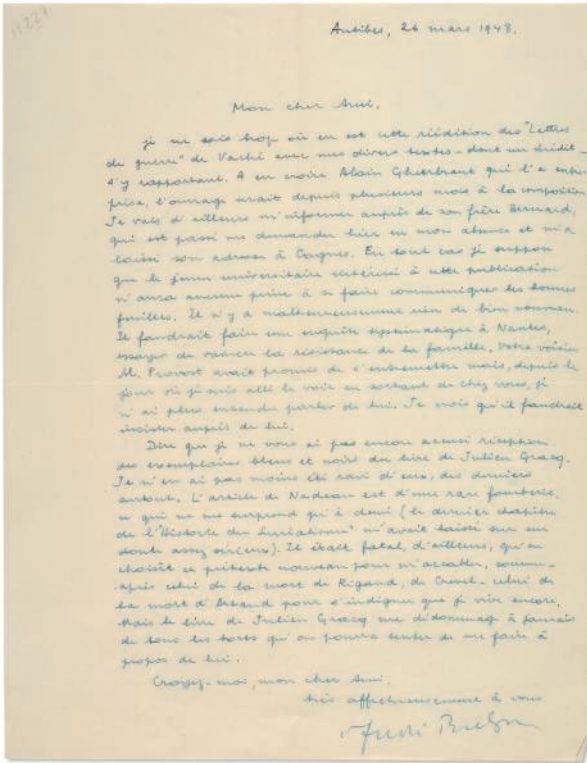 Antibes, 26 mars 1948.
Mon cher Ami,
je ne sais trop où en est cette réédition des "Lettres
de guerre" de Vaché avec mes divers textes - dont un inédit -
s'y rapportant. A en croire Alain Gheerbrant qui l'a entre-
prise, l'ouvrage serait depuis plusieurs mois à la composition
Je vais d'ailleurs m'informer auprès de son frère Bernard,
qui est passé me demander hier en mon absence et m'a
laissé son adresse à Cagnes. En tout cas je suppose
que le jeune universitaire intéressé à cette publication
n'aura aucune peine à se faire communiquer les bonnes
feuilles. Il n'y a malheureusement rien de bien nouveau.
Il faudrait faire une enquête systématique à Nantes,
essayer de vaincre la résistance de la famille. Votre voisin
M. Provost avait promis de s'entremettre mais, depuis le
jour où je suis allé le voir en sortant de chez vous, je
n'ai plus entendu parler de lui. Je crois qu'il faudrait
insister auprès de lui.
Dire que je ne vous ai pas encore accusé réception
des exemplaires bleus et noirs du livre de Julien Gracq.
Je n'en ai pas moins été ravi d'eux, des derniers
surtout. L'article de Nadeau est d'une rare fourberie,
ce qui ne me surprend qu'à demi (le dernier chapitre
de l'"Histoire du Surréalisme" m'avait laissé sur un
doute assez sérieux). Il était fatal, d'ailleurs, qu'on
choisît ce prétexte nouveau pour m'accabler, comme -
après celui de la mort de Rigaud, de Crevel - celui de
la mort d'Artaud pour s'indigner que je vive encore.
Mais le livre de Julien Gracq me dédommage à jamais
de tous les torts qu'on pourra tenter de me faire à
propos de lui.
Croyez-moi, mon cher Ami,
très affectueusement à vous
André Breton